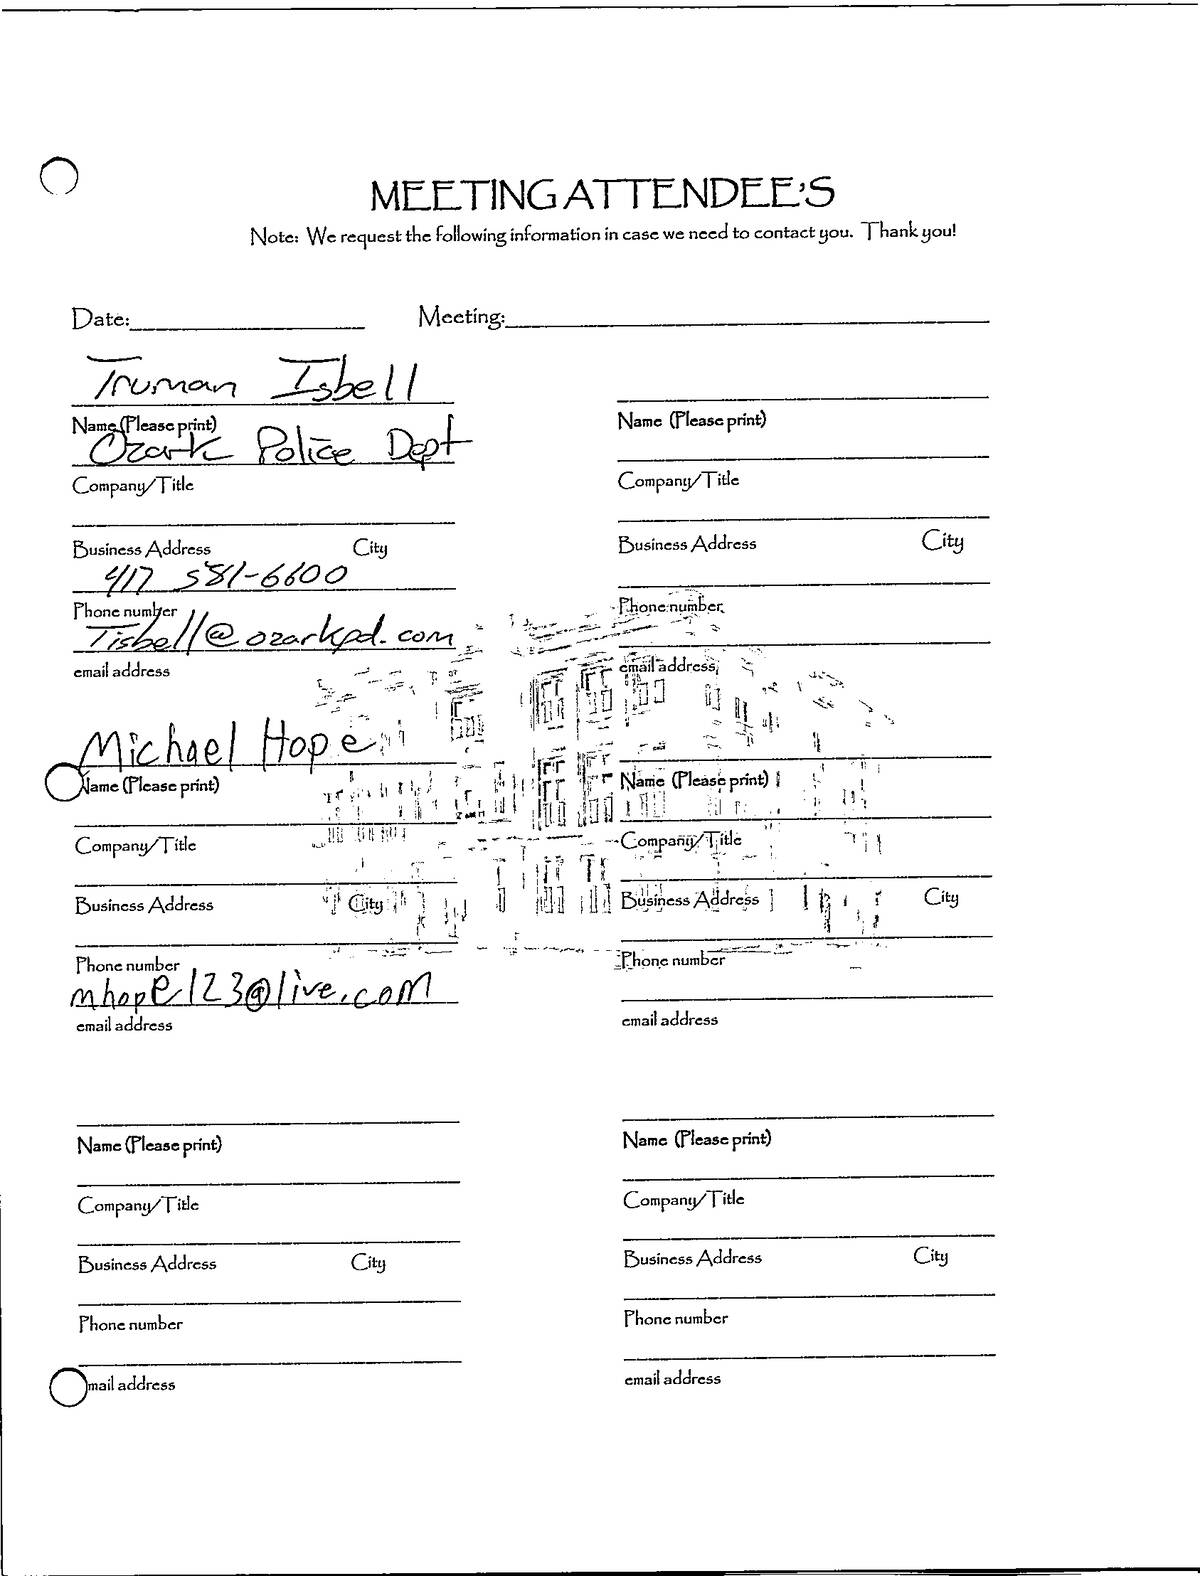 MEETING ATTENDEE'S
Note: We request the following information in case we need to contact you. Thank you!
Date: Meeting:
Truman Isbell
Name (Please print)
Ozark Police Dept
Company/Title
Business Address City
417 581-6600
Phone number
Tisbell@ozarkpd.com
email address
Name (Please print)
Company/Title
Business Address City
Phone number
email address
Michael Hope
Name (Please print)
Company/Title
Business Address City
Phone number
mhope123@live.com
email address
Name (Please print)
Company/Title
Business Address City
Phone number
email address
Name (Please print)
Company/Title
Business Address City
Phone number
mail address
Name (Please print)
Company/Title
Business Address City
Phone number
email address